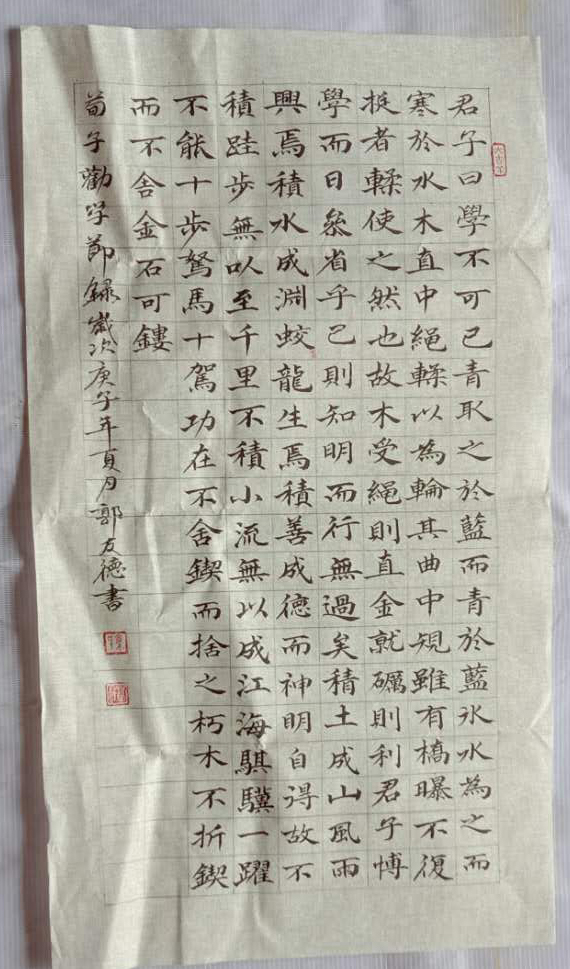 君子曰學不可已青取之於藍而青於藍冰水為之而
寒於水木直中繩輮以為輪其曲中規雖有槁曝不復
挺者輮使之然也故木受繩則直金就礪則利君子愽
學而日叅省乎己則知明而行無過矣積土成山風雨
興焉積水成淵蛟龍生焉積善成德而神明自得故不
積跬步無以至千里不積小流無以成江海騏驥一躍
不能十步駑馬十駕功在不舍鍥而捨之朽木不折鍥
而不舍金石可鏤
荀子勸学節錄歲次庚子年夏月郭友德書